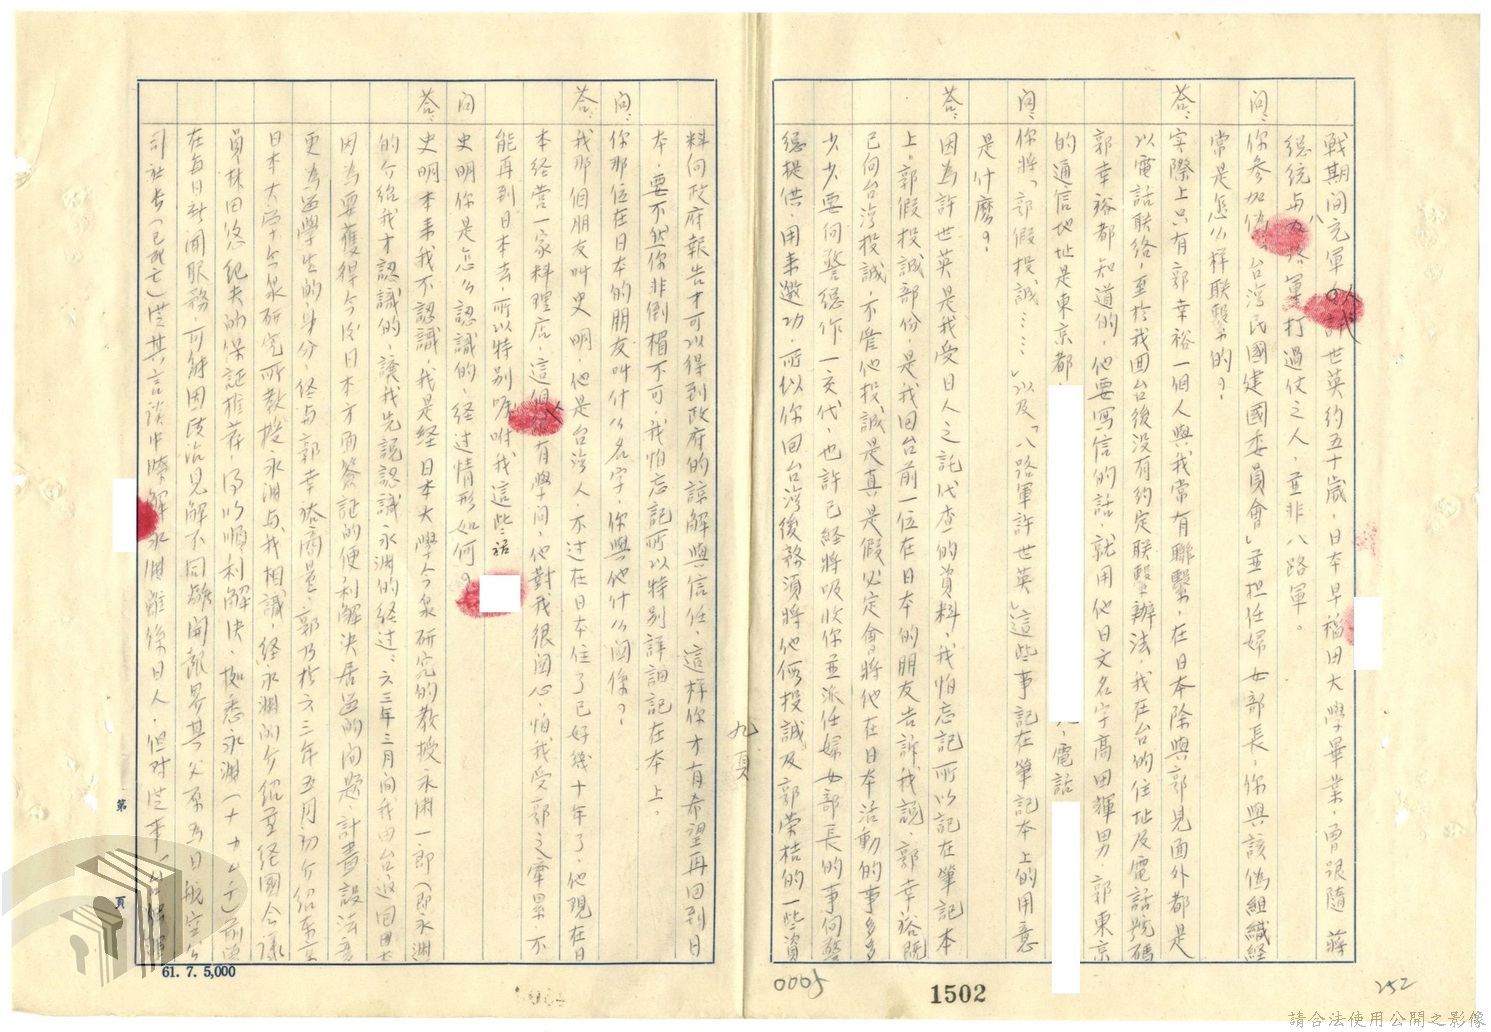 戰期間充軍。許世英約五十歲，日本早稻田大學畢業，曾跟隨 蔣
總統与八路軍打過仗之人，並非八路軍。
問：你參加偽「台灣民國建國委員會」並担任婦女部長，你與該偽組織經
常是怎么樣聯繫的？
答：实際上只有郭幸裕一個人與我常有聯繫，在日本除與郭見面外都是
以電話联络，至於我回台後没有約定联繫辦法，我在台的住址及電話號碼
郭幸裕都知道的，他要寫信的話，就用他日文名字高田輝男，郭東京
的通信地址是東京都
，電話
問：你將「郭假投誠……」以及「八路軍許世英」這些事記在筆記本上的用意
是什麼？
答：因為許世英是我受日人之託代查的資料，我怕忘記所以記在筆記本
上。郭假投誠部份，是我回台前一位在日本的朋友告訴我説，郭幸裕既
已向台湾投誠，不管他投誠是真是假必定會將他在日本活動的事多多
少少要向警總作一交代，也許已經將吸收你並派任婦女部長的事向警
總提供，用來邀功，所以你回台灣後務須將他假投誠及郭榮桔的一些資
料向政府報告才可以得到政府的諒解與信任，這樣你才有希望再回到日
本，要不然你非倒楣不可，我怕忘記所以特别詳細記在本上。
問：你那位在日本的朋友叫什么名字，你與他什么関係？
答：我那個朋友叫史明，他是台湾人，不过在日本住了已好幾十年了，他現在日
本经营一家料理店，這個人有學问，他對我很関心，怕我受郭之牽累不
能再到日本去，所以特别嘱咐我這些話
問：史明你是怎么認識的，经过情形如何？
答：史明本来我不認識，我是经日本大學今泉研究的教授永渊一郎（即永渊
的介绍我才認識的，讓我先説認識永渊的经过：六三年三月間我由台返回日本
因為要獲得今後日本方面簽証的便利解決居留的问題，計畫設法变
更為留學生的身分，经与郭幸裕商量，郭乃於六三年五月初介绍东京
日本大學今泉研究所教授永渊与我相識，经永渊的介绍並经國会議
員林田悠纪夫的保証推荐，得以順利解决，據悉永渊
在每日新聞服務，可能因政治見解不同離開報界其父原為日航空公
司社長（已死亡）從其言談中瞭解永渊雖係日人，但对從事
九頁
第
頁
61. 7. 5,000
0005
1502
252
請合法使用公開之影像